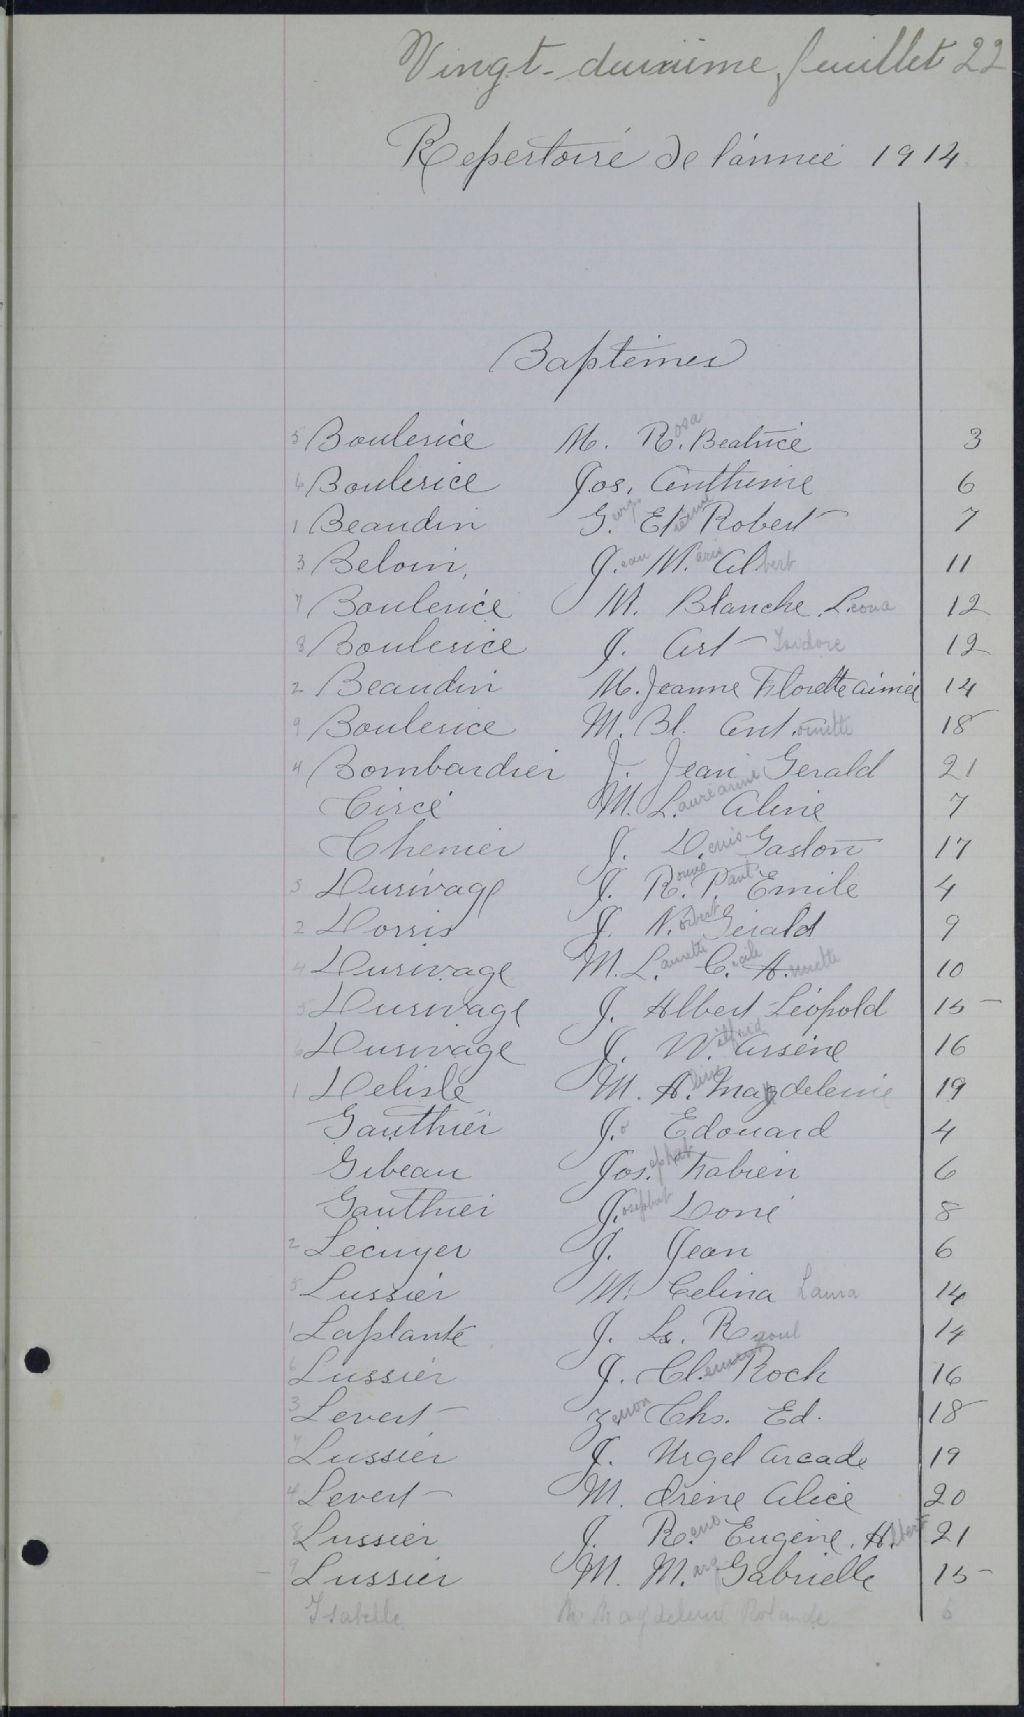 Vingt-deuxième feuillet 22
Repertoire de l'année 1914
Baptêmes
5 Boulerice M. Rosa Beatrice 3
6 Boulerice Jos. Anthime 6
1 Beaudin G. Etienne Robert 7
3 Beloin, Jean Marie Albert 11
7 Boulerice M. Blanche Leona 12
8 Boulerice J. Art Isidore 12
2 Beaudin M. Jeanne Florette aimée 14
9 Boulerice M. Bl. Antoinette 18
4 Bombardier J. Jean Gerald 21
Circé M. Laureanne Aline 7
Chenier J. Denis Gaston 17
3 Durivage J. Paul Emile 4
2 Dorris J. Norbert Gerald 9
4 Durivage M. Laurette Cecile Annette 10
5 Durivage J. Albert Léopold 15
6 Durivage J. Wilfrid Arsène 16
1 Delisle M. Aline Magdeleine 19
Gauthier J. Edouard 4
Gibeau Josephat Fabien 6
Gauthier Josephat Doné 8
2 Lecuyer J. Jean 6
5 Lussier M. Celina Laura 14
1 Laplante J. Ls. Raoul 14
6 Lussier J. Clement Roch 16
3 Levert Zenon Chs. Ed. 18
7 Lussier J. Urgel Arcade 19
4 Levert M. Irène Alice 20
8 Lussier J. Reno Eugène. Albert 21
9 Lussier M. Marg Gabrielle 15
Isabelle M. Magdeleine Rolande 5